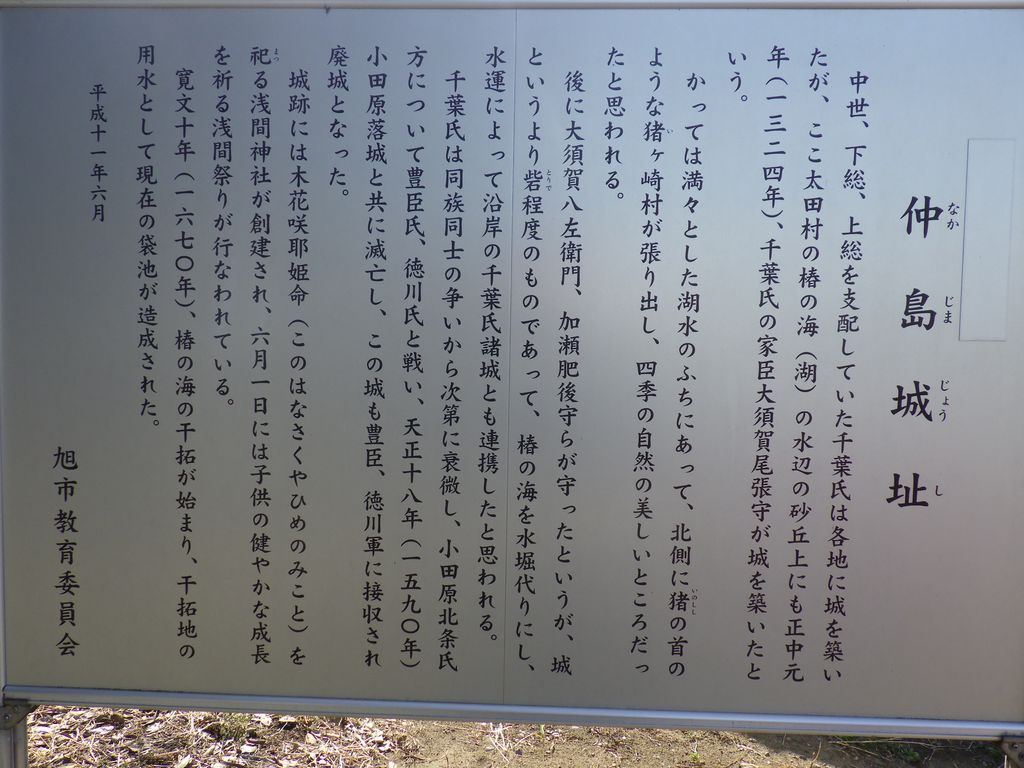 仲島城址
中世、下総、上総を支配していた千葉氏は各地に城を築い
たが、ここ太田村の椿の海（湖）の水辺の砂丘上にも正中元
年（一三二四年）、千葉氏の家臣大須賀尾張守が城を築いたと
いう。
かっては満々とした湖水のふちにあって、北側に猪の首の
ような猪ヶ崎村が張り出し、四季の自然の美しいところだっ
たと思われる。
後に大須賀八左衛門、加瀬肥後守らが守ったというが、城
というより砦程度のものであって、椿の海を水堀代りにし、
水運によって沿岸の千葉氏諸城とも連携したと思われる。
千葉氏は同族同士の争いから次第に衰微し、小田原北条氏
方について豊臣氏、徳川氏と戦い、天正十八年（一五九〇年）
小田原落城と共に滅亡し、この城も豊臣、徳川軍に接収され
廃城となった。
城跡には木花咲耶姫命（このはなさくやひめのみこと）を
祀る浅間神社が創建され、六月一日には子供の健やかな成長
を祈る浅間祭りが行なわれている。
寛文十年（一六七〇年）、椿の海の干拓が始まり、干拓地の
用水として現在の袋池が造成された。
平成十一年六月
旭市教育委員会